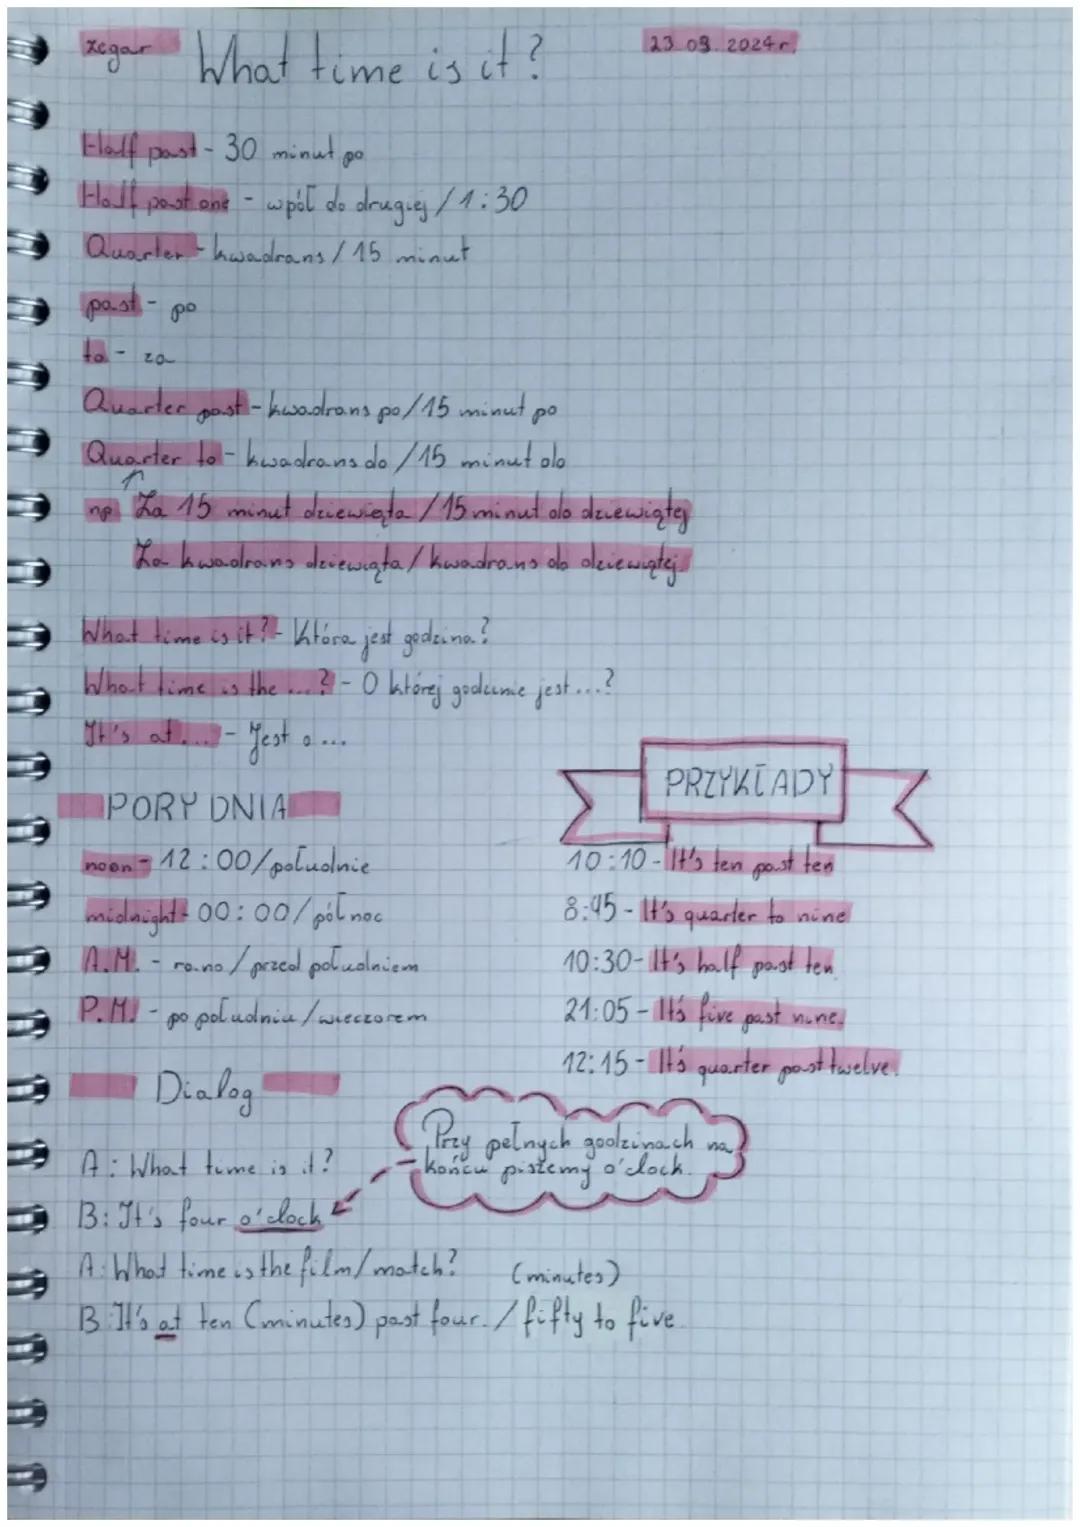 zegar What time is it? 23.09.2024r.
Half past - 30 minut po
Half past one - wpół do drugiej / 1:30
Quarter - kwadrans / 15 minut
past - po
to - za
Quarter past - kwadrans po / 15 minut po
Quarter to - kwadrans do / 15 minut do
np. Za 15 minut dziewiąta / 15 minut do dziewiątej
Za kwadrans dziewiąta / kwadrans do dziewiątej
What time is it? - Która jest godzina?
What time is the ...? - O której godzinie jest...?
It's at.... - Jest o ...
PORY DNIA
noon - 12:00/południe
midnight - 00:00/północ
A.M. - rano / przed południem
P.M. - po południu / wieczorem
PRZYKŁADY
10:10 - It's ten past ten
8:45 - It's quarter to nine
10:30 - It's half past ten.
21:05 - It's five past nine.
12:15 - It's quarter past twelve.
Dialog
Przy pełnych godzinach na
końcu piszemy o'clock.
A: What time is it?
B: It's four o'clock
A: What time is the film/match?
(minutes)
B: It's at ten (minutes) past four. / fifty to five.